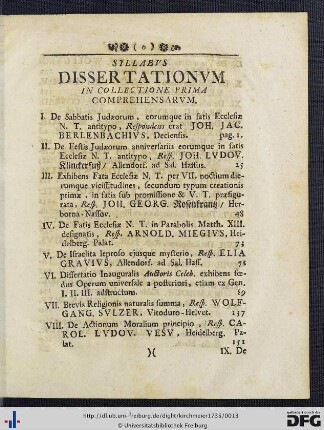 ( o )
SYLLABVS
DISSERTATIONVM
IN COLLECTIONE PRIMA
COMPREHENSARVM.
I. De Sabbatis Judæorum, eorumque in fatis Ecclesiæ
N. T. antitypo, Respondens erat JOH. JAC.
BERLENBACHIVS, Deciensis. pag. 1.
II. De Festis Judæorum anniversariis eorumque in fatis
Ecclesiæ N. T. antitypo, Resp. JOH. LVDOV.
Allendorf. ad Sal. Hassus. 25
III. Exhibens Fata Ecclesiæ N. T. per VII. noctium die-
rumque vicissitudines, secundum typum creationis
primæ, in fatis sub promissione & V. T. præfigu-
rata, Resp. JOH. GEORG. Rosenkrantz / Her-
borna-Nassov. 48
IV. De Fatis Ecclesiæ N. T. in Parabolis Matth. XIII.
designatis, Resp. ARNOLD. MIEGIVS, Hei-
delberg. Palat. 73
V. De Israelita leproso ejusque mysterio, Resp. ELIA
GRAVIVS, Allendorf. ad Sal. Hass. 76
VI. Dissertatio Inauguralis Auctoris Celeb. exhibens fœ-
dus Operum universale a posteriori, etiam ex Gen.
I. II. III. adstructum. 89
VII. Brevis Religionis naturalis summa, Resp. WOLF-
GANG. SVLZER. Vitoduro-Helvet. 137
VIII. De Actionum Moralium principio, Resp. CA-
ROL. LVDOV. VESV, Heidelberg. Pa-
lat. 151
)( IX. De
http://dl.ub.uni-freiburg.de/diglit/kirchmeier1735/0013
© Universitätsbibliothek Freiburg